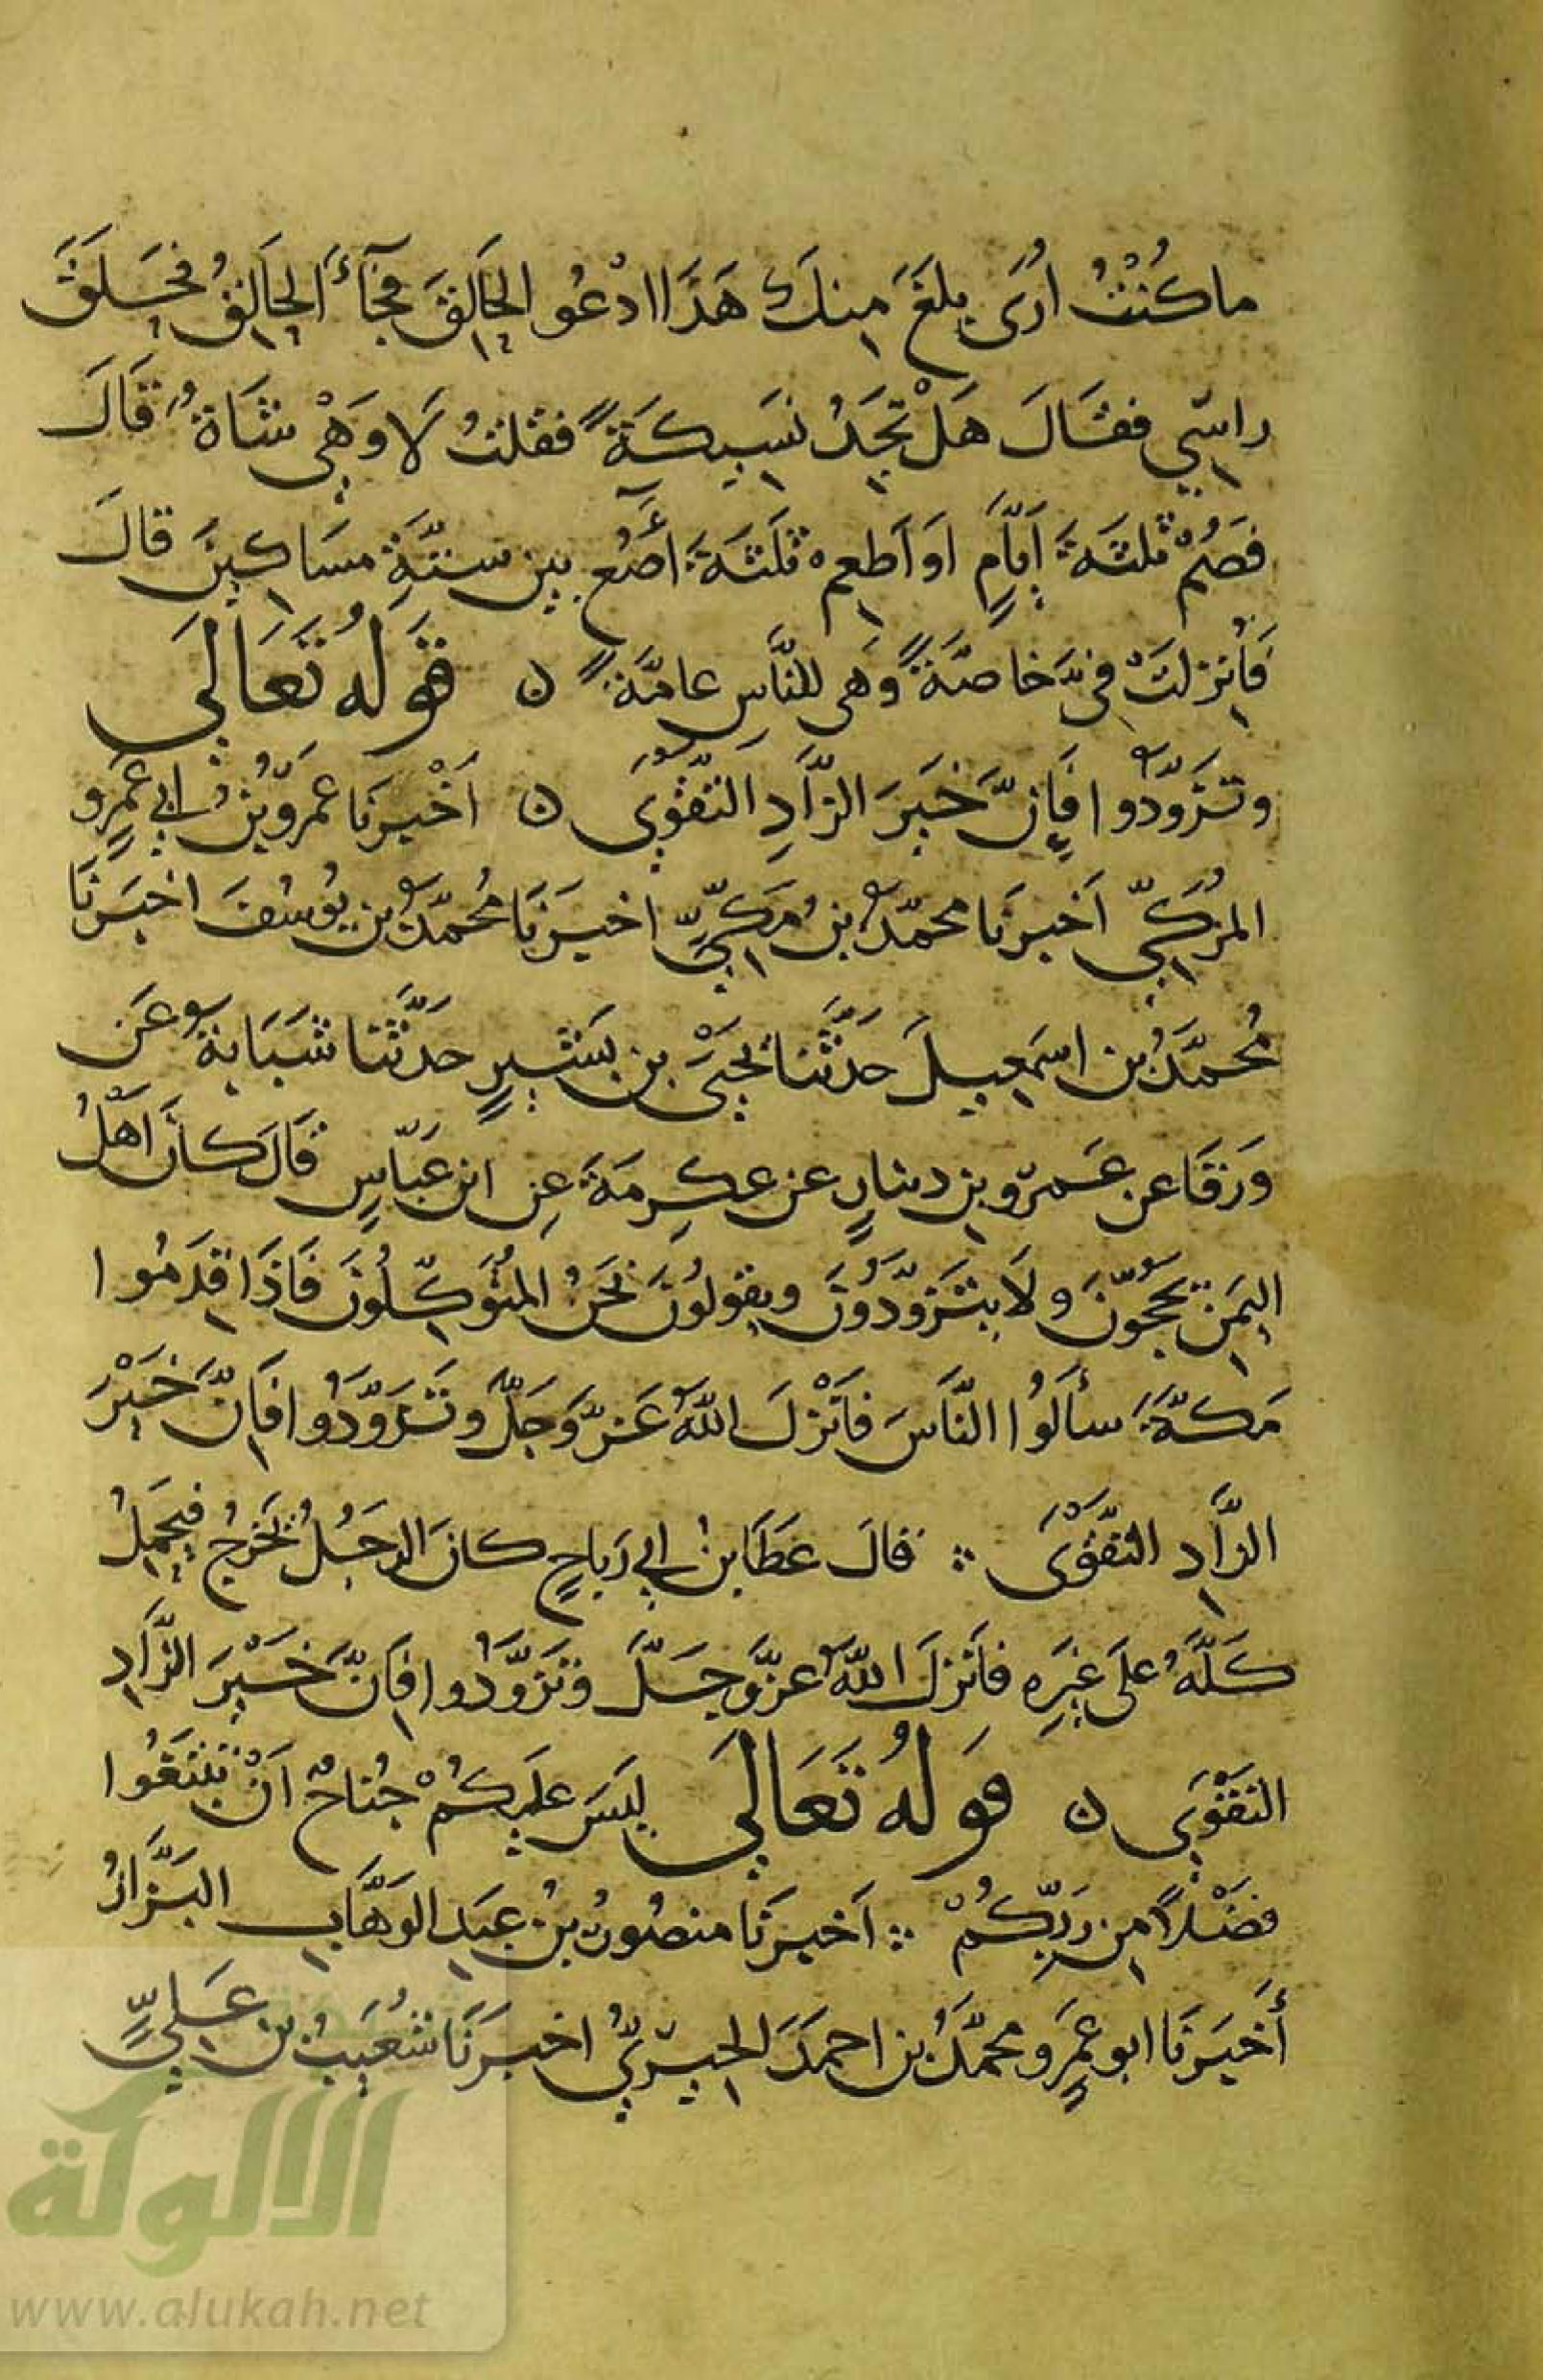 ما كُنْتُ أُرَى بلغَ منكَ هَذَا ادْعُو الحَالِقَ فجَآءَ الحَالِقُ فحَلَقَ
راسِي فقَالَ هَلْ تجِدُ نسِيكَةً فقلتُ لَا وَهْيَ شَاةٌ قَالَ
فصُمْ ثلثةَ أيَّامٍ اَو اَطعم ثلَثةَ آصُعٍ بين ستَّةِ مسَاكِينَ قالَ
فَأُنْزِلتْ فيَّ خاصَّةً وَهَى للنَّاسِ عامَّةً ن قَولُهُ تَعَالَى
وتَزَوَّدُوا فَإِنَّ خَيرَ الزَّادِ التَّقْوَى ن اَخْبرنَا عمرُو بنُ ابي عَمرٍو
المُزَكِّي اَخبرنَا محمّدُ بنُ مَكِيٍّ اخبرَنَا مُحمّدُ بن يُوسُفَ اخبَرنَا
مُحمَّدُ بن اسمَعِيلَ حَدَّثنَا يحيَى بن بشْرٍ حَدَّثنَا شَبَابَةُ عَن
وَرْقَا عن عَمرِو بن دينارٍ عن عِكرِمَةَ عن ابن عَبَّاسٍ قَالَ كَانَ اَهْلُ
اليَمَنِ يَحُجُّونَ ولَا يتَزَوَّدُونَ ويقولُونَ نَحنُ المتَوَكِّلُونَ فَاذَا قَدِمُوا
مَكَّةَ سأَلُوا النَّاسَ فاَنْزلَ اللهُ عَزَّ وَجَلَّ وتَزَوَّدُوا فَإنَّ خَيْرَ
الزَّادِ التَّقْوَى ؞ قالَ عَطَا بنُ ابي رَباحٍ كانَ الرجُلُ يَخرجُ فيَحمِلُ
كَلَّهُ علَى غيرِهِ فاَنزلَ اللهُ عزَّ وجَلَّ وتَزوَّدُوا فإنَّ خَيْرَ الزَّادِ
التقْوَى ن قَولُهُ تَعَالَى ليسَ علَيكُمْ جُنَاحٌ اَنْ تبْتغُوا
فضْلاً من رَبِّكُمْ ؞ اَخبرَنَا منصُورُ بنُ عبدِ الوَهَّابِ البَزَّازُ
أَخبرَنَا ابو عمرٍو محمَّدُ بن احمَدَ الحِيرِيُّ اخبرَنَا شُعَيبُ بن عَلِيٍّ
الألوكة
www.alukah.net